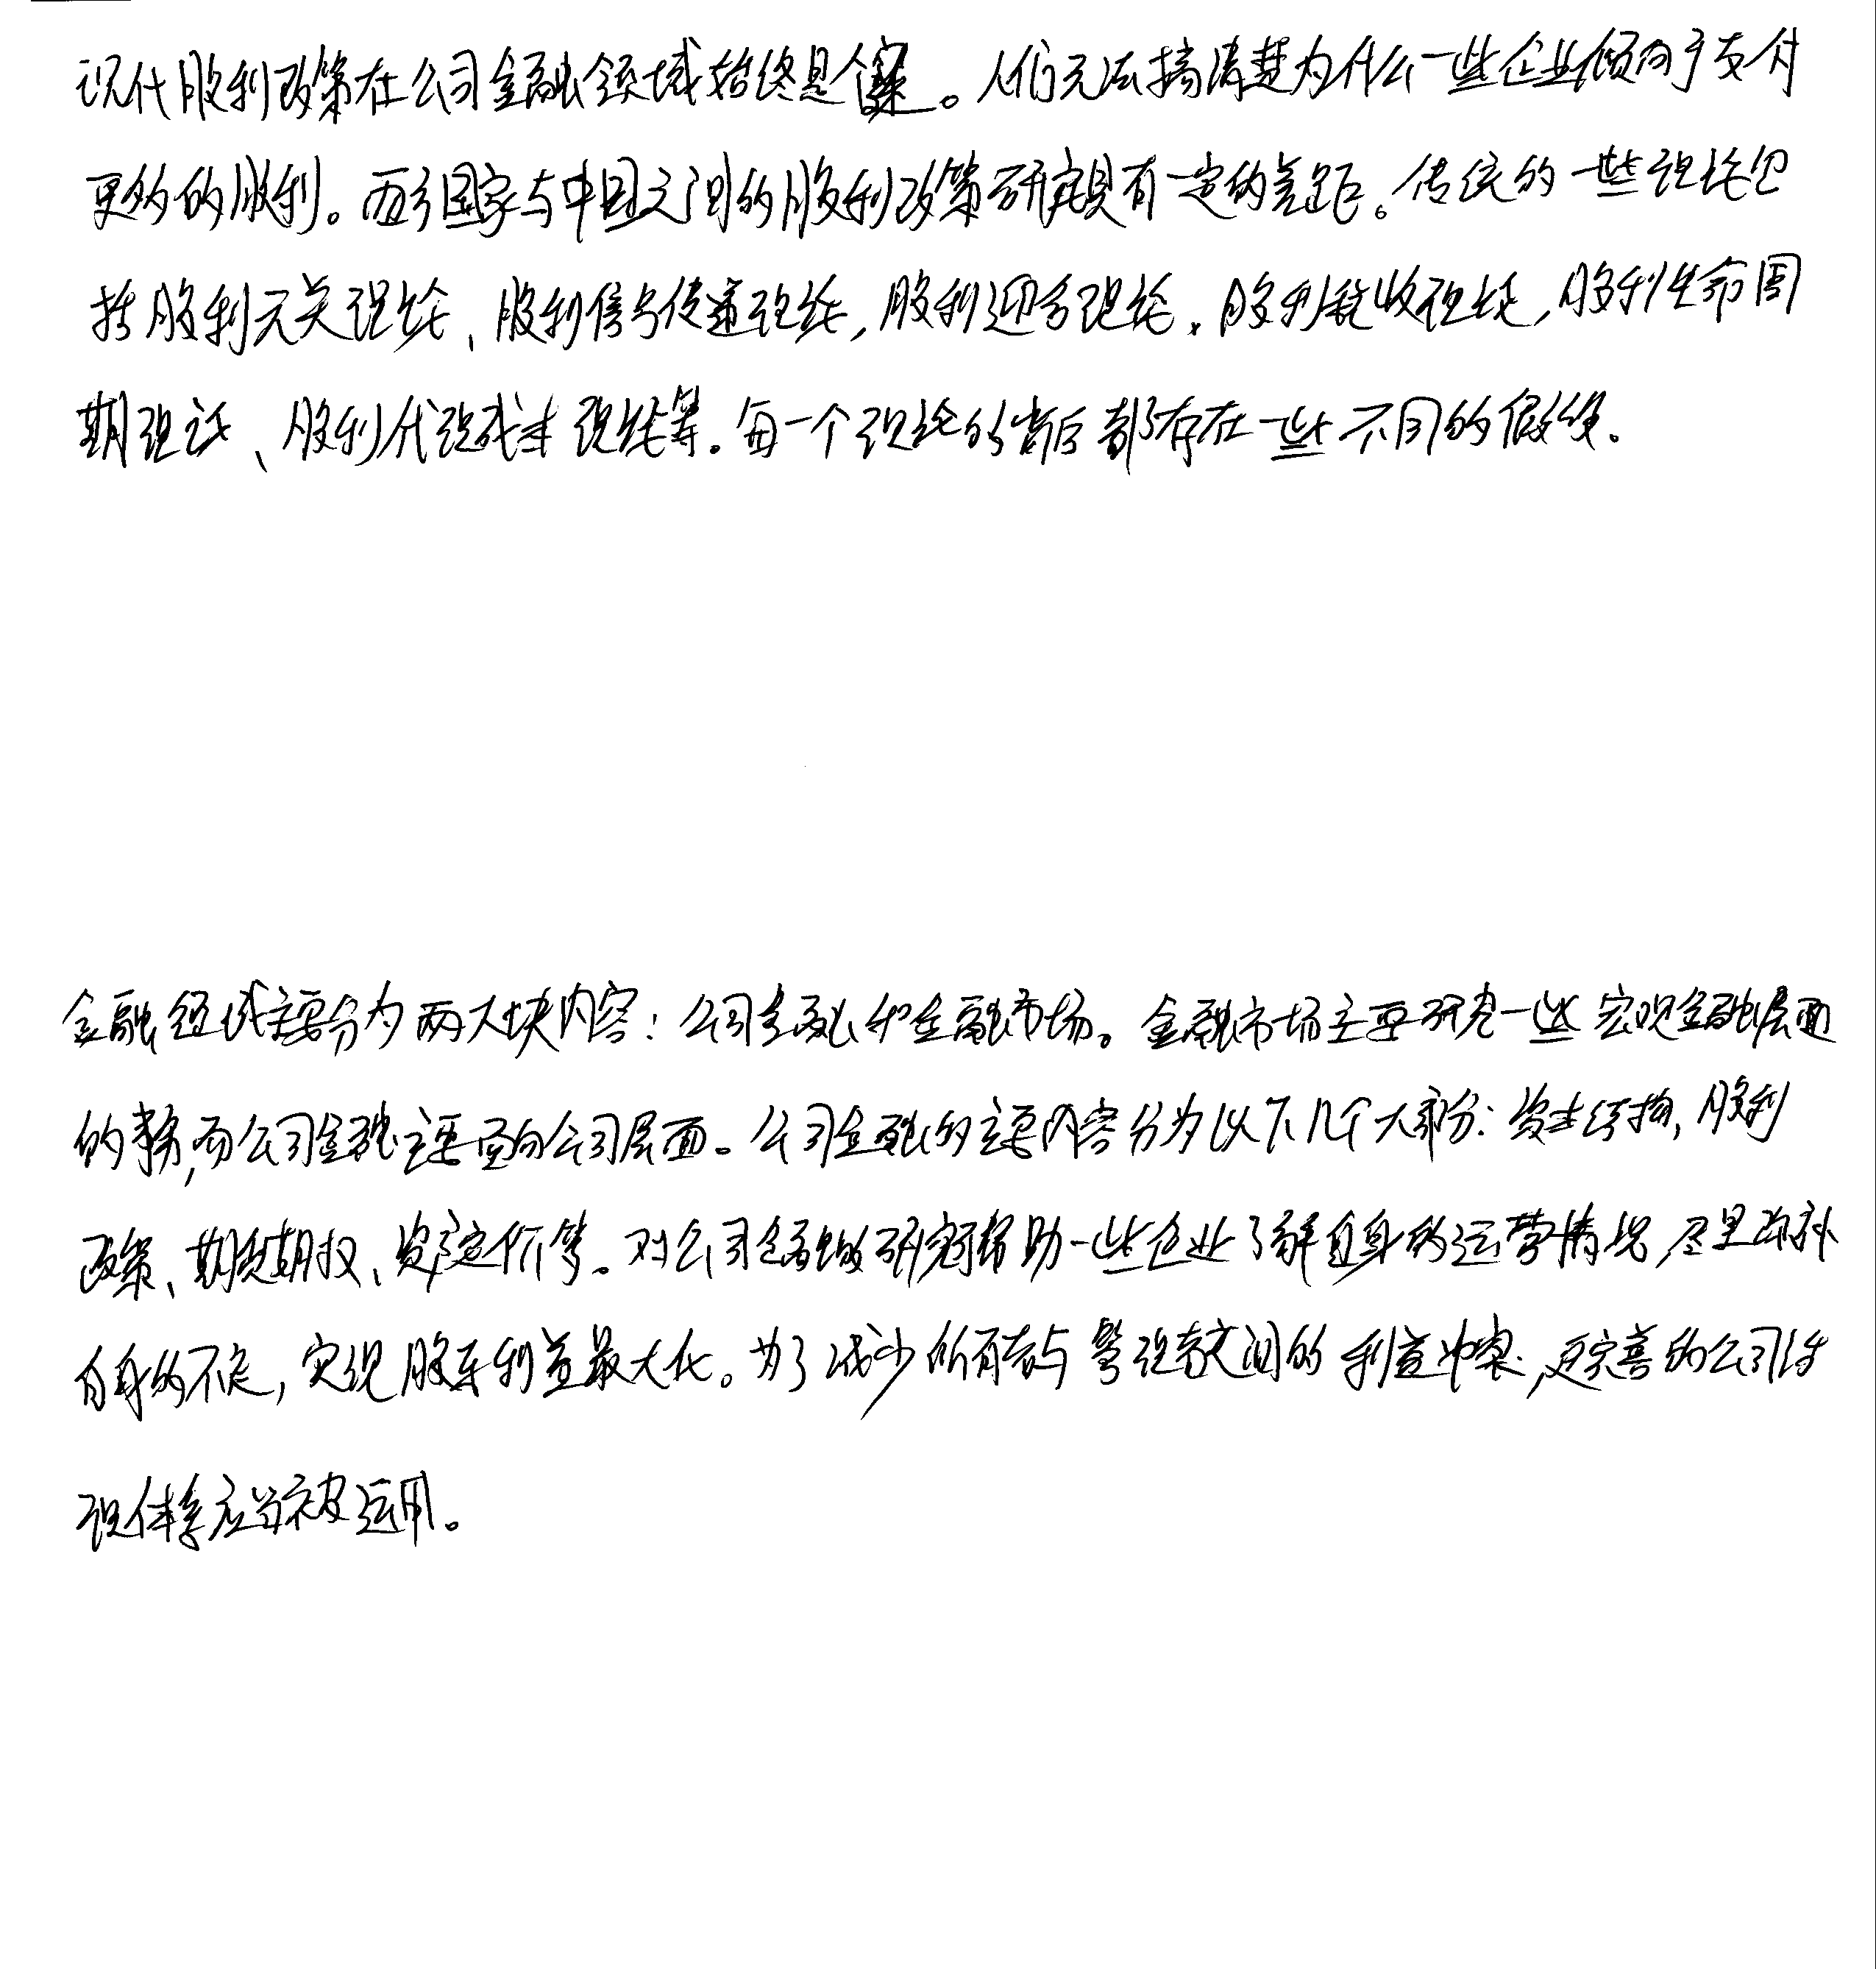 现代股利政策在公司金融领域始终是个案。人们无法搞清楚为什么一些企业倾向于支付
更多的股利。西方国家与中国之间的股利政策研究具有一定的差距。传统的一些理论包
括股利无关理论、股利信号传递理论,股利迎合理论、股利税收理论,股利生命周
期理论、股利代理成本理论等。每一个理论的背后都存在一些不同的假设。
金融领域主要分为两大块内容:公司金融和金融市场。金融市场主要研究一些宏观金融层面
的事务,而公司金融主要面向公司层面。公司金融的主要内容分为以下几个大部分:资本结构,股利
政策、期货期权、资产定价等。对公司金融做研究可帮助一些企业了解自身的运营情况,尽早弥补
自身的不足,实现股东利益最大化。为了减少所有者与管理者之间的利益冲突,更完善的公司治
理体系应当被运用。